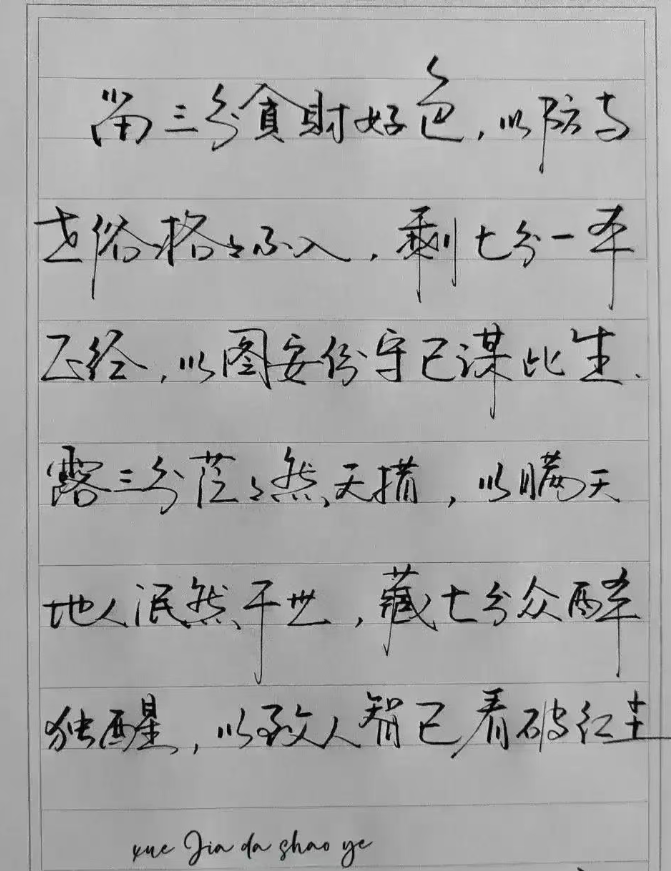 留三分貪財好色，以防与
世俗格格不入，剩七分一本
正经，以图安份守己谋此生.
露三分茫茫然无措，以瞒天
地人泯然于世，藏七分众醉
独醒，以致人智已看破红尘
xue Jia da shao ye